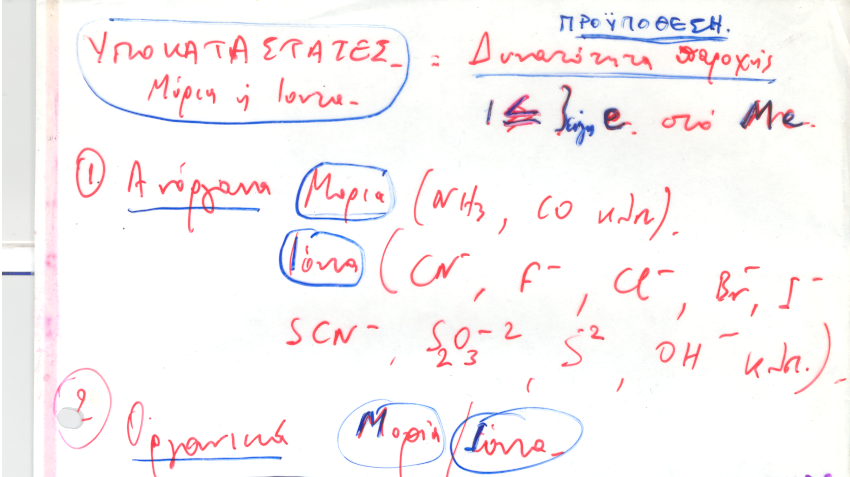 ΠΡΟΫΠΟΘΕΣΗ.
ΥΠΟΚΑΤΑΣΤΑΤΕΣ = Δυνατότητα παροχής
Μόρια ή Ιόντα
1 ≤ } ζεύγη e. στο Me.
1. Ανόργανα Μόρια (NH3, CO κλπ).
Ιόντα (CN⁻, F⁻, Cl⁻, Br⁻, I⁻
SCN⁻, S2O3⁻², S⁻², OH⁻ κλπ.).
2 Οργανικά Μόρια / Ιόντα